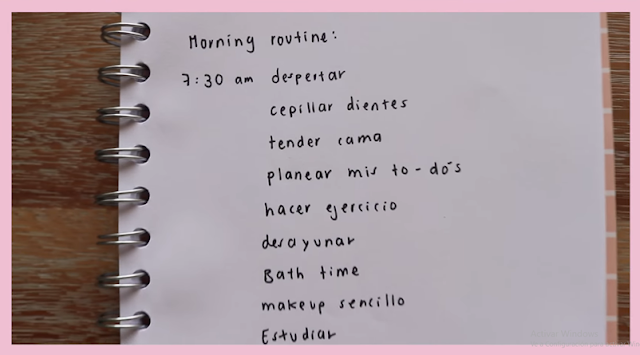 Morning routine:
7:30 am despertar
cepillar dientes
tender cama
planear mis to-do's
hacer ejercicio
desayunar
Bath time
makeup sencillo
Estudiar